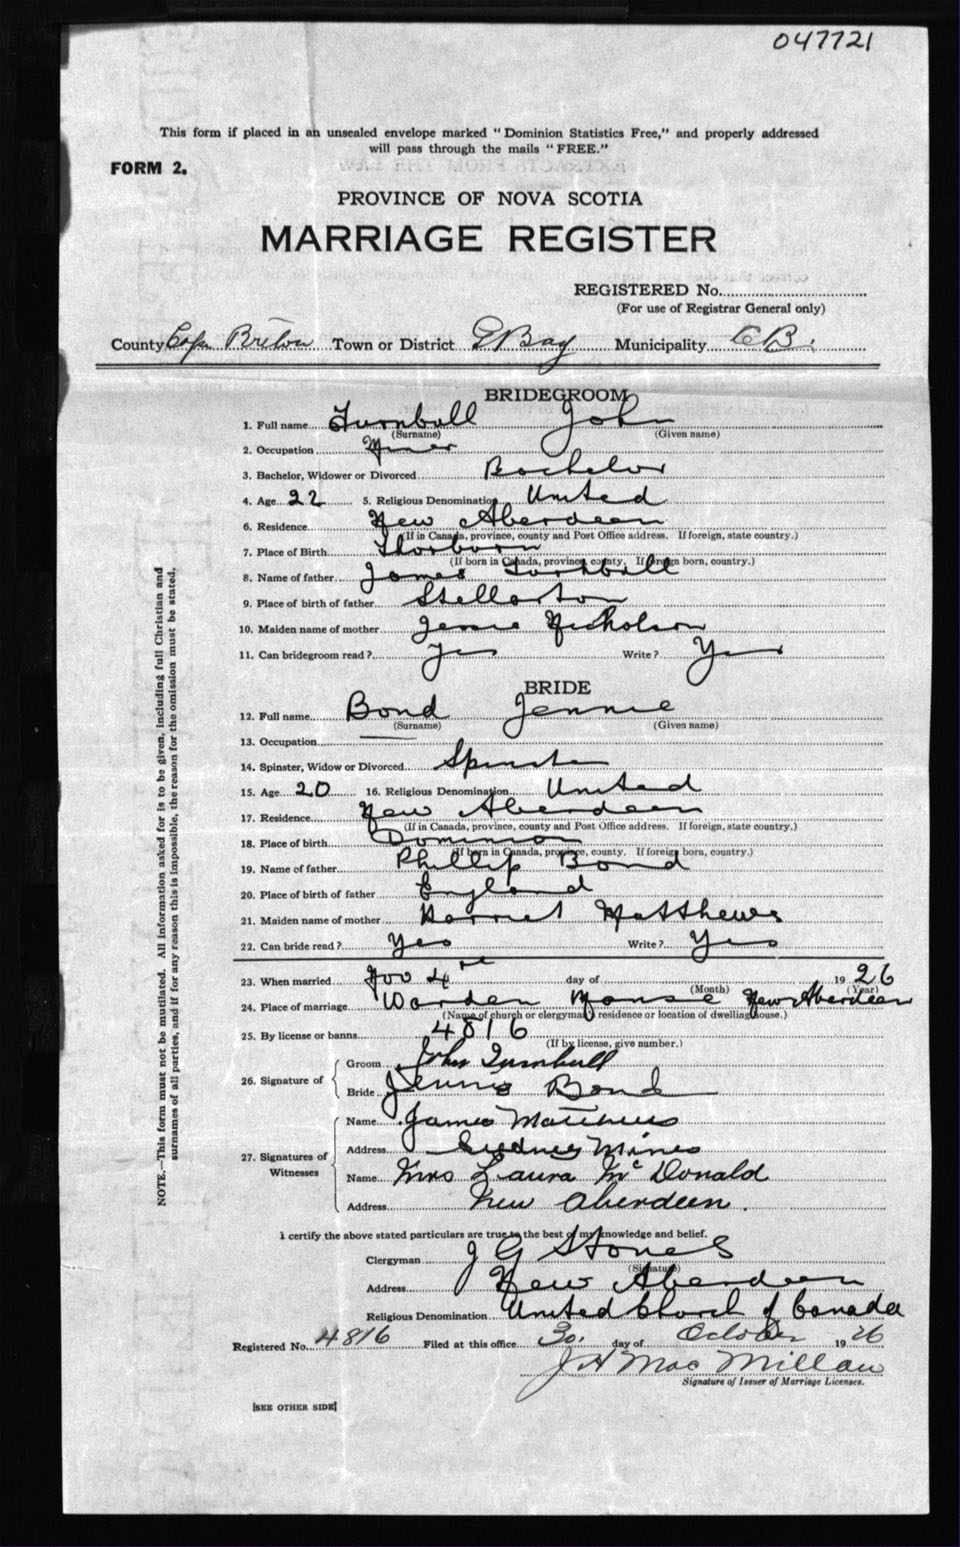 047721
This form if placed in an unsealed envelope marked "Dominion Statistics Free," and properly addressed
will pass through the mails "FREE."
FORM 2.
PROVINCE OF NOVA SCOTIA
MARRIAGE REGISTER
REGISTERED No.
(For use of Registrar General only)
County Cape Breton Town or District G Bay Municipality C B.
BRIDEGROOM
1. Full name Turnbull John
(Surname) (Given name)
2. Occupation Miner
3. Bachelor, Widower or Divorced Bachelor
4. Age 22 5. Religious Denomination United
6. Residence New Aberdeen
(If in Canada, province, county and Post Office address. If foreign, state country.)
7. Place of Birth Thorburn
(If born in Canada, province, county. If foreign born, country.)
8. Name of father James Turnbull
9. Place of birth of father Stellarton
10. Maiden name of mother Jessie Nicholson
11. Can bridegroom read? Yes Write? Yes
BRIDE
12. Full name Bond Jennie
(Surname) (Given name)
13. Occupation
14. Spinster, Widow or Divorced Spinster
15. Age 20 16. Religious Denomination United
17. Residence New Aberdeen
(If in Canada, province, county and Post Office address. If foreign, state country.)
18. Place of birth Dominion
(If born in Canada, province, county. If foreign born, country.)
19. Name of father Phillip Bond
20. Place of birth of father England
21. Maiden name of mother Harriet Matthews
22. Can bride read? Yes Write? Yes
23. When married Nov 4th day of 1926
(Month) (Year)
24. Place of marriage Warden Manse New Aberdeen
(Name of church or clergyman's residence or location of dwelling house.)
25. By license or banns 4816
(If by license, give number.)
26. Signature of Groom John Turnbull
Bride Jennie Bond
27. Signatures of Witnesses Name James Matthews
Address Sydney Mines
Name Mrs Laura McDonald
Address New Aberdeen.
I certify the above stated particulars are true to the best of my knowledge and belief.
Clergyman J G Stones
(Signature)
Address New Aberdeen
Religious Denomination United Church of Canada
Registered No. 4816 Filed at this office 30. day of October 1926
J H MacMillan
Signature of Issuer of Marriage Licenses.
[SEE OTHER SIDE]
NOTE.—This form must not be mutilated. All information asked for is to be given, including full Christian and
surnames of all parties, and if for any reason this is impossible, the reason for the omission must be stated.